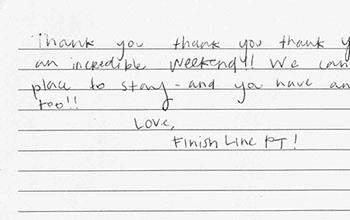 Thank you thank you thank y
an incredible weekend!! We can
place to stay - and you have an
too!!
Love,
Finish Line PT!